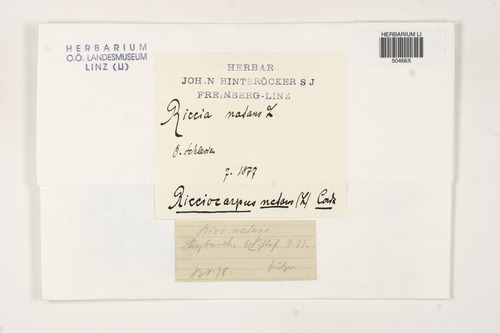 HERBARIUM
O.Ö. LANDESMUSEUM
LINZ (LI)
HERBARIUM LI
50466X
HERBAR
JOHAN HINTERÖCKER S J
FREINBERG-LINZ
Riccia natans L
O. Schlesien
7. 1877
Ricciocarpus natans (L) Corda
Ricc natans.